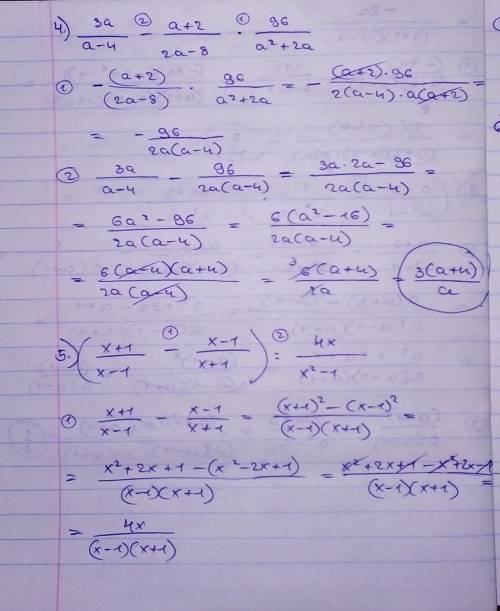 4) 3a/(a-4) ② - (a+2)/(2a-8) ① · 96/(a²+2a)
① - (a+2)/(2a-8) · 96/(a²+2a) = - (a+2)·96/(2(a-4)·a(a+2)) =
= - 96/(2a(a-4))
② 3a/(a-4) - 96/(2a(a-4)) = (3a·2a-96)/(2a(a-4)) =
= (6a²-96)/(2a(a-4)) = 6(a²-16)/(2a(a-4)) =
= 6(a-4)(a+4)/(2a(a-4)) = ³6(a+4)/(2a) = 3(a+4)/a
5.) ((x+1)/(x-1) ① - (x-1)/(x+1)) ② : 4x/(x²-1)
① (x+1)/(x-1) - (x-1)/(x+1) = ((x+1)²-(x-1)²)/((x-1)(x+1)) =
= (x²+2x+1-(x²-2x+1))/((x-1)(x+1)) = (x²+2x+1-x²+2x-1)/((x-1)(x+1)) =
= 4x/((x-1)(x+1))